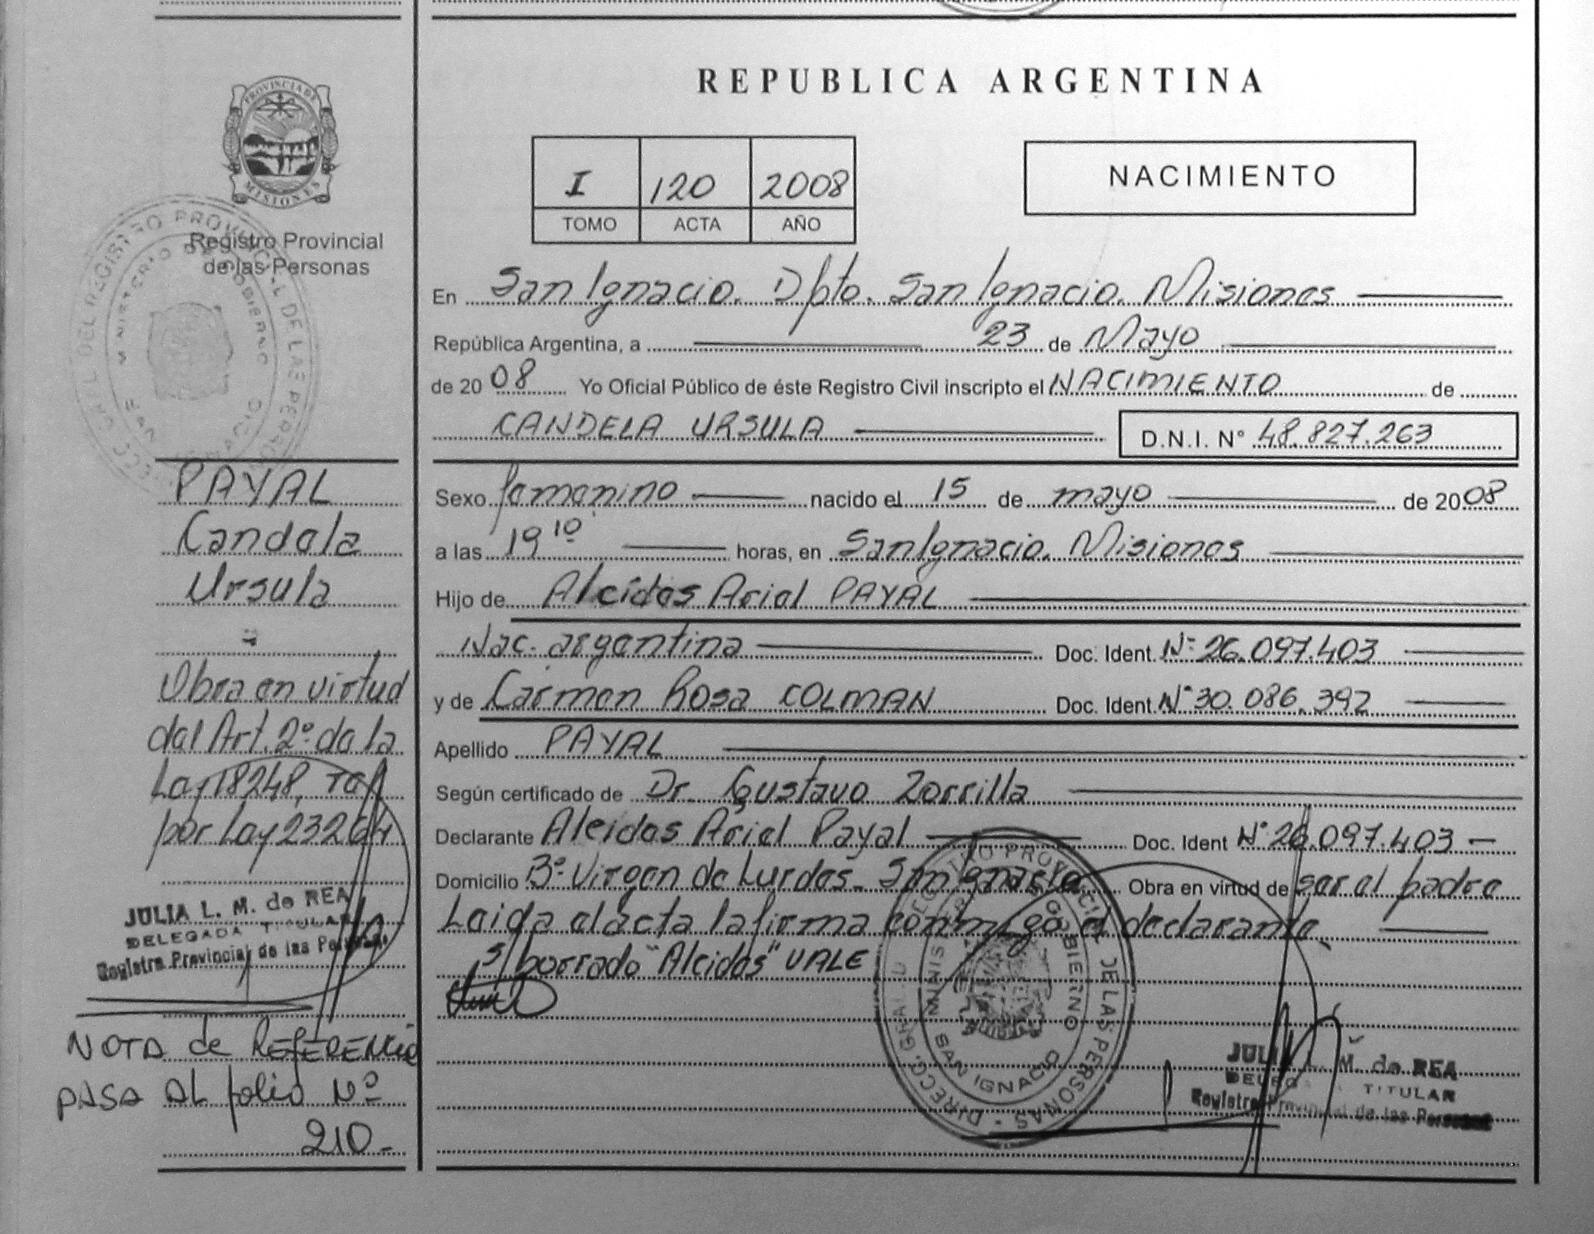 REPUBLICA ARGENTINA
PROVINCIA DE
MISIONES
Registro Provincial
de las Personas
I 120 2008
TOMO ACTA AÑO
NACIMIENTO
En San Ignacio. Dpto. San Ignacio. Misiones
República Argentina, a 23 de Mayo
de 2008 Yo Oficial Público de éste Registro Civil inscripto el NACIMIENTO de
CANDELA URSULA D.N.I. N° 48.827.263
Sexo femenino nacido el 15 de mayo de 2008
a las 19 10 horas, en San Ignacio. Misiones
Hijo de Alcides Ariel PAYAL
Nac. argentina Doc. Ident. N° 26.097.403
y de Carmen Rosa COLMAN Doc. Ident. N° 30.086.392
Apellido PAYAL
Según certificado de Dr. Gustavo Zorrilla
Declarante Alcides Ariel Payal Doc. Ident N° 26.097.403
Domicilio B° Virgen de Lurdes. San Ignacio Obra en virtud de ser el padre
Leida el acta la firma conmigo el declarante.
s/borrado "Alcides" VALE
DIRECC. GRAL. DEL REGISTRO PROVINCIAL DE LAS PERSONAS
MINISTERIO DE GOBIERNO
SAN IGNACIO
JULIA L. M. de REA
DELEGADA TITULAR
Registro Provincial de las Personas
PAYAL
Candela
Ursula
Obra en virtud
del Art. 2° de la
Ley 18248,
por Ley 23264
JULIA L. M. de REA
DELEGADA TITULAR
Registro Provincial de las Personas
NOTA de REFERENCIA
PASA AL folio N°
210-